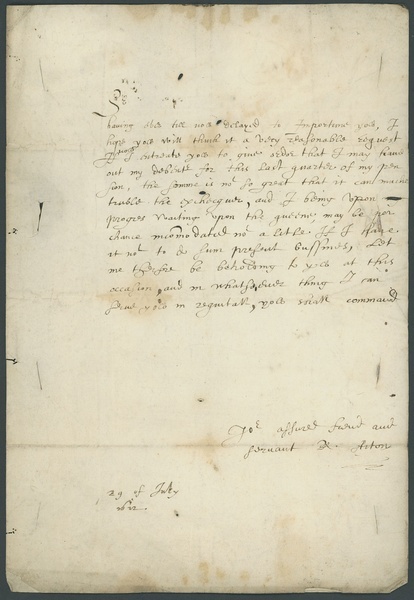 Sr
having ever till now delayed to Importune you, I
hope you will think it a very reasonable request
If I intreate you to give order that I may have
out my debent for this last quarter of my pen
sion, the somme is no so great that it can much
truble the exchequer, and I being upon
progres waiting upon the queene may be
chance incomodated no a litle If I have
it not to do sum present bussines, Let
me therfre be beholding to you at this
occasion, and in whatsoever thing I can
serve you in requitall, you shall command
Yor assured frend and
servant R. Acton
29 of July
1612